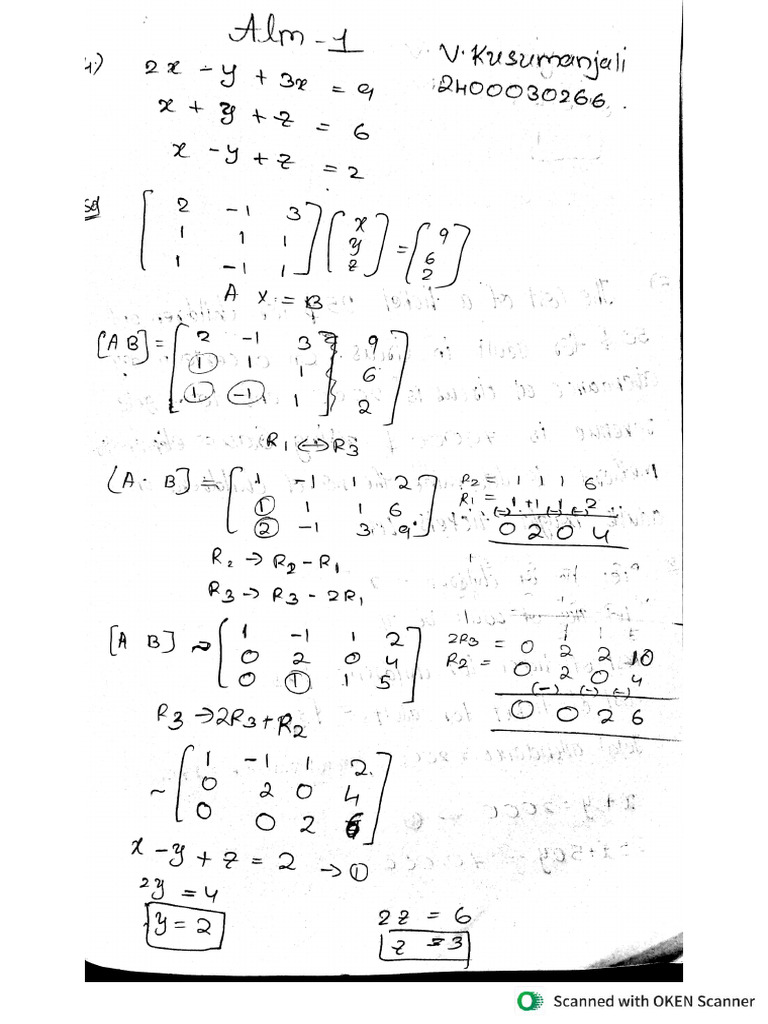 Alm - 1
V. Kusumanjali
2400030266.
4) 2x - y + 3x = 9
x + y + z = 6
x - y + z = 2
sol [2 -1 3] [x] = [9]
[1 1 1] [y] [6]
[1 -1 1] [z] [2]
A X = B
[A B] = [2 -1 3 9]
[1 1 1 6]
[1 -1 1 2]
R1 ↔ R3
[A · B] = [1 -1 1 2]
[1 1 1 6]
[2 -1 3 9]
R2 = 1 1 1 6
R1 = 1 +1 1 2
(-) (-) (-)
0 2 0 4
R2 → R2 - R1
R3 → R3 - 2R1
[A B] ~ [1 -1 1 2]
[0 2 0 4]
[0 1 1 5]
2R3 = 0 2 2 10
R2 = 0 2 0 4
(-) (-) (-)
0 0 2 6
R3 → 2R3 + R2
~ [1 -1 1 2]
[0 2 0 4]
[0 0 2 6]
x - y + z = 2 → ①
2y = 4
y = 2
2z = 6
z = 3
Scanned with OKEN Scanner